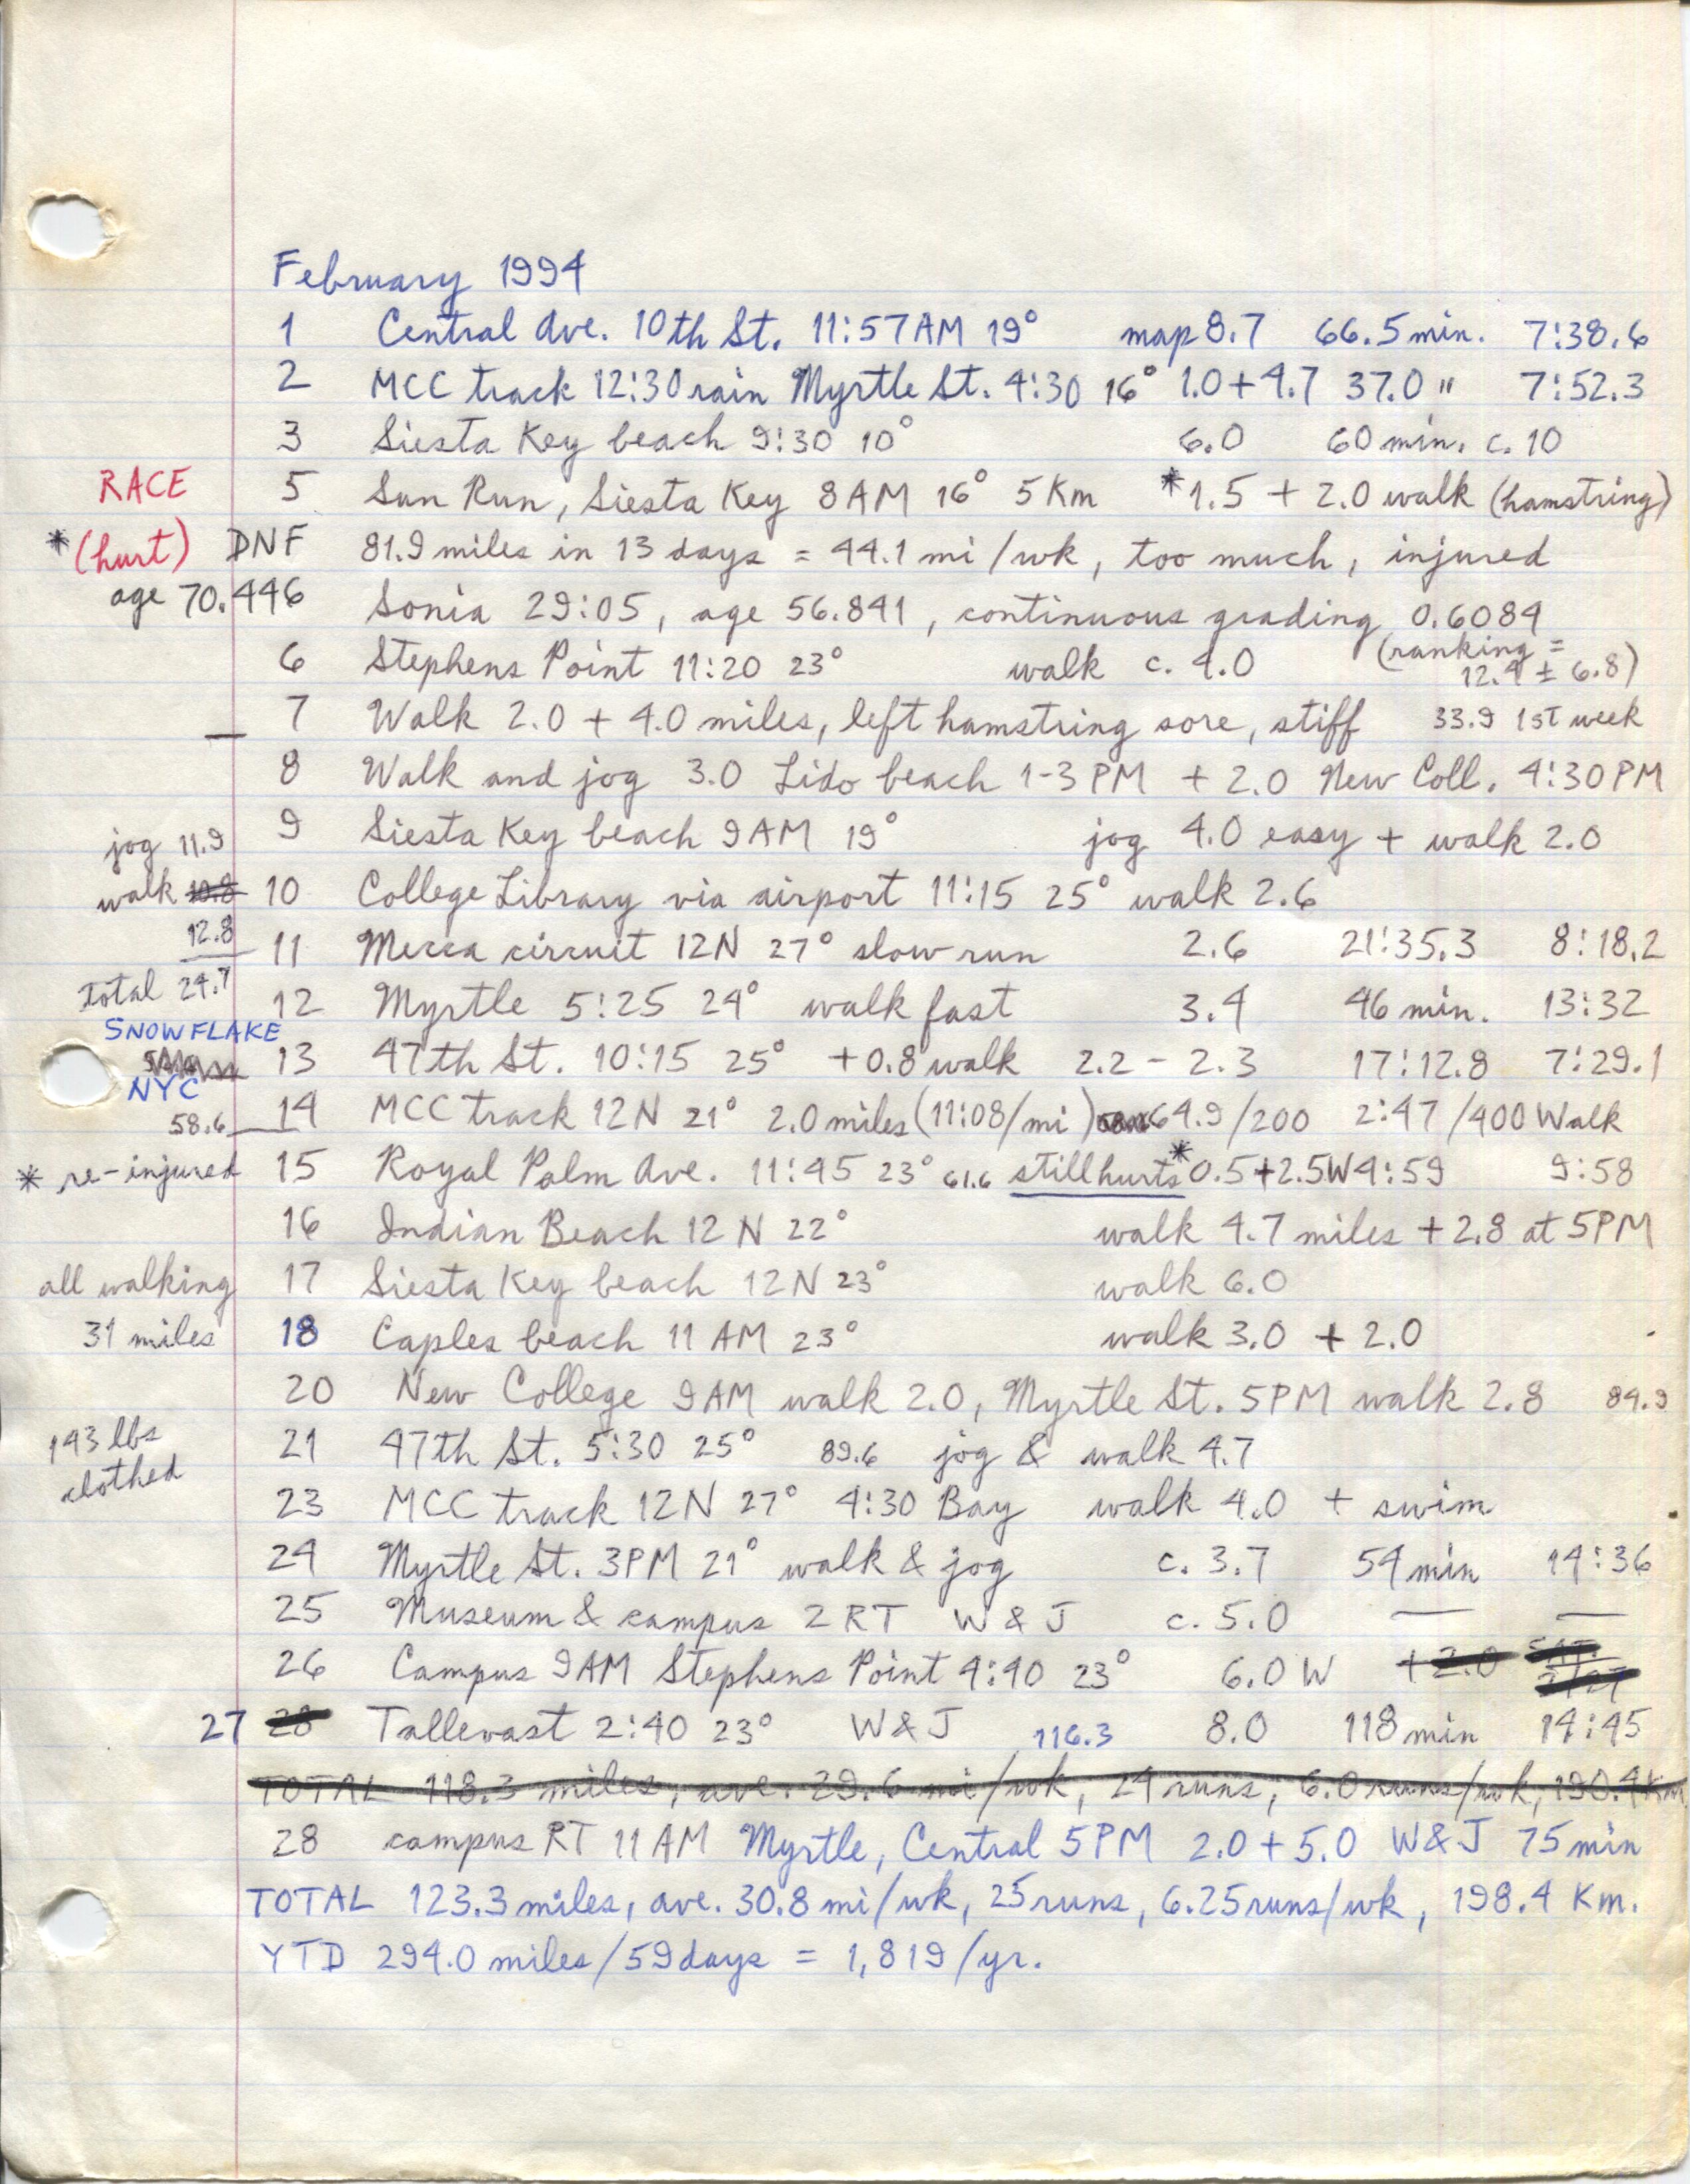 February 1994
1 Central Ave. 10th St. 11:57AM 19° map 8.7 66.5 min. 7:38.6
2 MCC track 12:30 rain Myrtle St. 4:30 16° 1.0+4.7 37.0 " 7:52.3
3 Siesta Key beach 9:30 10° 6.0 60 min. c. 10
RACE 5 Sun Run, Siesta Key 8AM 16° 5 Km *1.5 + 2.0 walk (hamstring)
* (hurt) DNF 81.9 miles in 13 days = 44.1 mi/wk, too much, injured
age 70.446 Sonia 29:05, age 56.841, continuous grading 0.6084
6 Stephens Point 11:20 23° walk c. 4.0 (ranking =
12.4 ± 6.8)
7 Walk 2.0 + 4.0 miles, left hamstring sore, stiff 33.9 1st week
8 Walk and jog 3.0 Lido beach 1-3 PM + 2.0 New Coll. 4:30PM
jog 11.9 9 Siesta Key beach 9AM 19° jog 4.0 easy + walk 2.0
walk 10.8 10 College Library via airport 11:15 25° walk 2.6
12.8 11 Mecca circuit 12N 27° slow run 2.6 21:35.3 8:18.2
Total 24.7 12 Myrtle 5:25 24° walk fast 3.4 46 min. 13:32
SNOWFLAKE
13 47th St. 10:15 25° +0.8 walk 2.2 - 2.3 17:12.8 7:29.1
NYC
58.6 14 MCC track 12N 21° 2.0 miles (11:08/mi) 64.9/200 2:47/400 Walk
* re-injured 15 Royal Palm Ave. 11:45 23° 61.6 still hurts *0.5+2.5W 4:59 9:58
16 Indian Beach 12N 22° walk 4.7 miles + 2.8 at 5PM
all walking 17 Siesta Key beach 12N 23° walk 6.0
31 miles 18 Caples beach 11 AM 23° walk 3.0 + 2.0
20 New College 9AM walk 2.0, Myrtle St. 5PM walk 2.8 84.9
143 lbs 21 47th St. 5:30 25° 89.6 jog & walk 4.7
clothed
23 MCC track 12N 27° 4:30 Bay walk 4.0 + swim
24 Myrtle St. 3PM 21° walk & jog c. 3.7 54 min 14:36
25 Museum & campus 2 RT W & J c. 5.0 — —
26 Campus 9AM Stephens Point 4:40 23° 6.0 W +2.0
27 28 Tallevast 2:40 23° W & J 116.3 8.0 118 min 14:45
TOTAL 118.3 miles, ave. 29.6 mi/wk, 24 runs, 6.0 runs/wk, 190.4 Km
28 campus RT 11 AM Myrtle, Central 5PM 2.0 + 5.0 W & J 75 min
TOTAL 123.3 miles, ave. 30.8 mi/wk, 25 runs, 6.25 runs/wk, 198.4 Km.
YTD 294.0 miles/59 days = 1,819/yr.